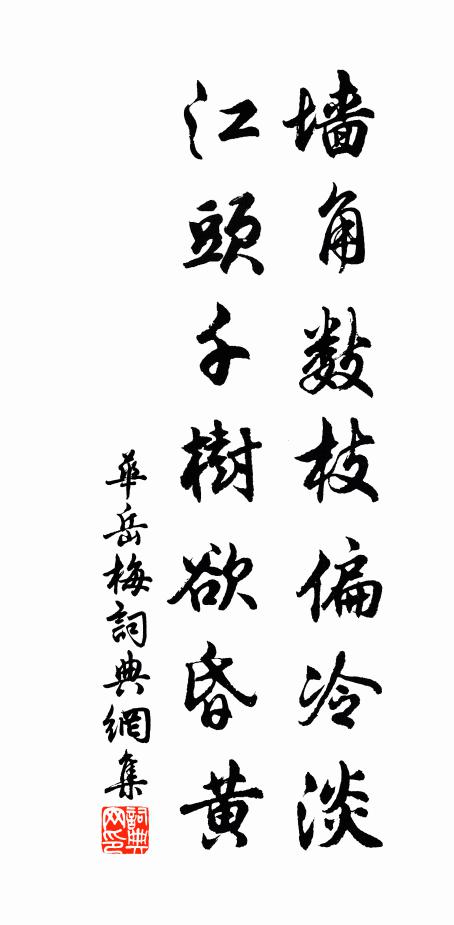 墙角数枝偏冷淡
江頭千樹欲昏黄
華岳梅詞典網集
詞典网印